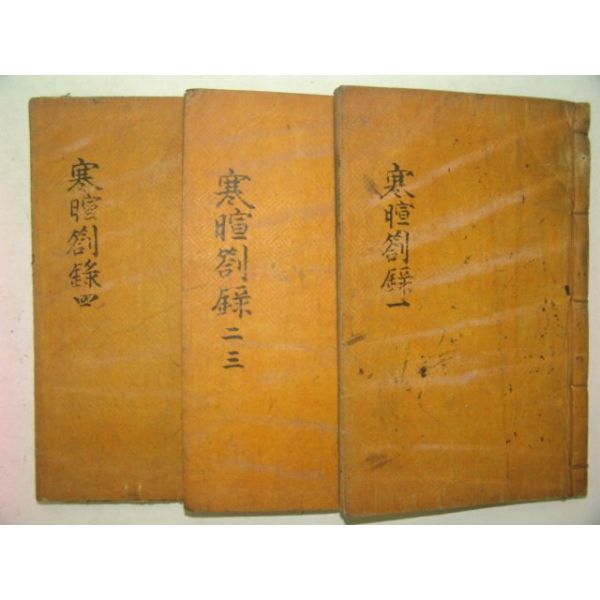 寒暄劄錄一
寒暄劄錄二三
寒暄劄錄四